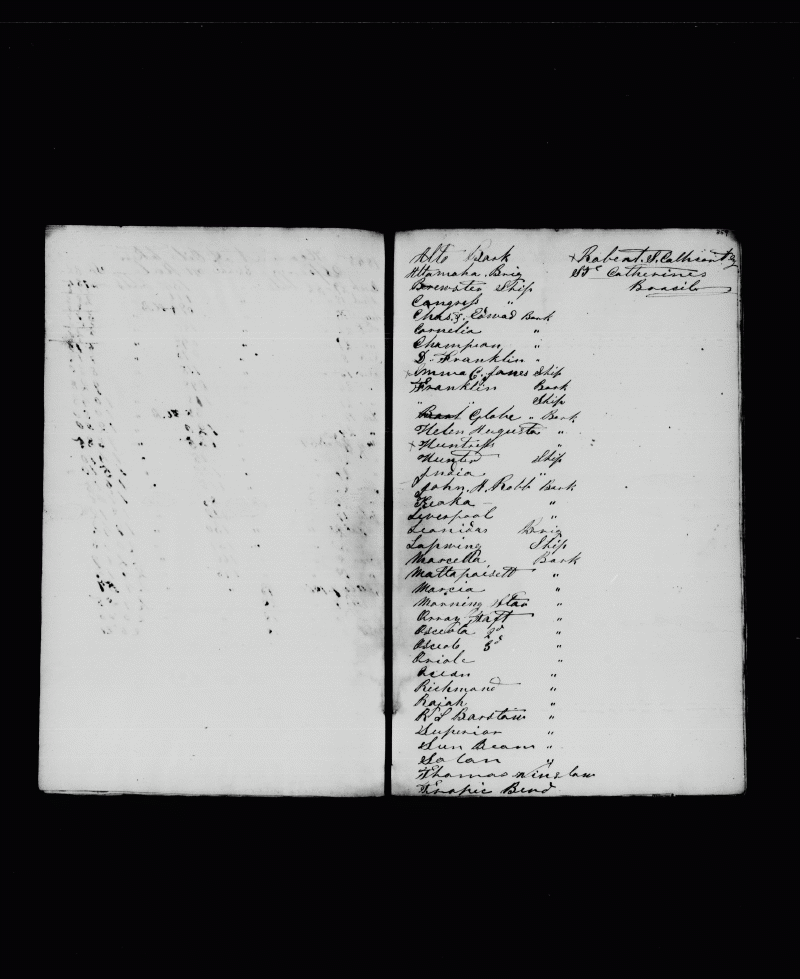 Alto Bark
Altamaha Brig
Brewster Ship
Congress "
Chas. & Edwad Bark
Cornelia "
Champion "
D. Franklin "
Emma C. Jones Ship
Franklin Bark
" " Ship
Globe " Bark
Helen Augusta "
x Huntress "
Hunter Ship
India "
John A. Robb Bark
Keoka "
Liverpool "
Leonidas Brig
Lapwing Ship
Marcella Bark
Mattapoisett "
Marcia "
Morning Star "
Orray Taft "
Osceola 2d "
Osceola 3d "
Oriole "
Ocean "
Richmond "
Rajah "
R L Barstow "
Superior "
Sun Beam "
Solon "
Thomas Winslow
Tropic Bird
x Robert S. Cathcart
St Catherines
Brasil